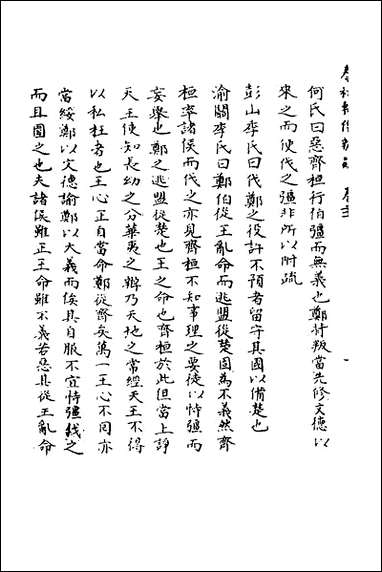 何氏曰惡齊桓行伯彊而無義也鄭背叛當先修文德以
來之而便伐之彊非所以附疏
彭山季氏曰伐鄭之役許不預者留守其國以備楚也
渝關李氏曰鄭伯從王亂命而逃盟從楚固為不義然齊
桓率諸侯而伐之亦見齊桓不知事理之要徒以恃彊而
妄舉也鄭之逃盟從楚也王之命也齊桓於此但當上諍
天王使知長幼之分華夷之辨乃天地之常經天王不得
以私枉者也王心正自當命鄭從齊矣萬一王心不回亦
當綏鄭以文德諭鄭以大義而俟其自服不宜恃彊伐之
而且圍之也夫諸侯雖正王命雖不義若惡其從王亂命